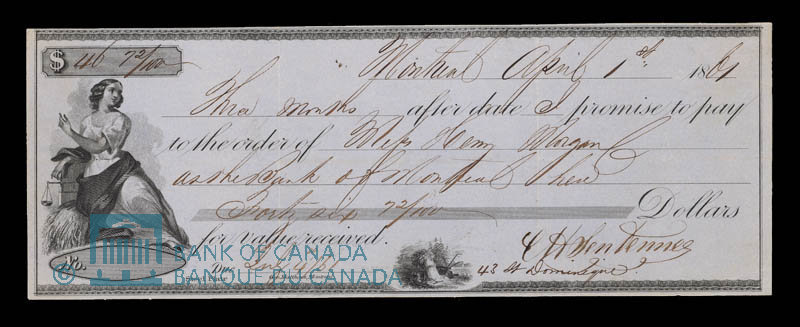 $ 46 72/100
Montreal April 1st 1861
Three months after date I promise to pay
to the order of Mess Henry Morgan
at the Bank of Montreal here
Forty six 72/100 Dollars
for value received.
No. Due July
43 St Dominique St
© BANK OF CANADA
BANQUE DU CANADA